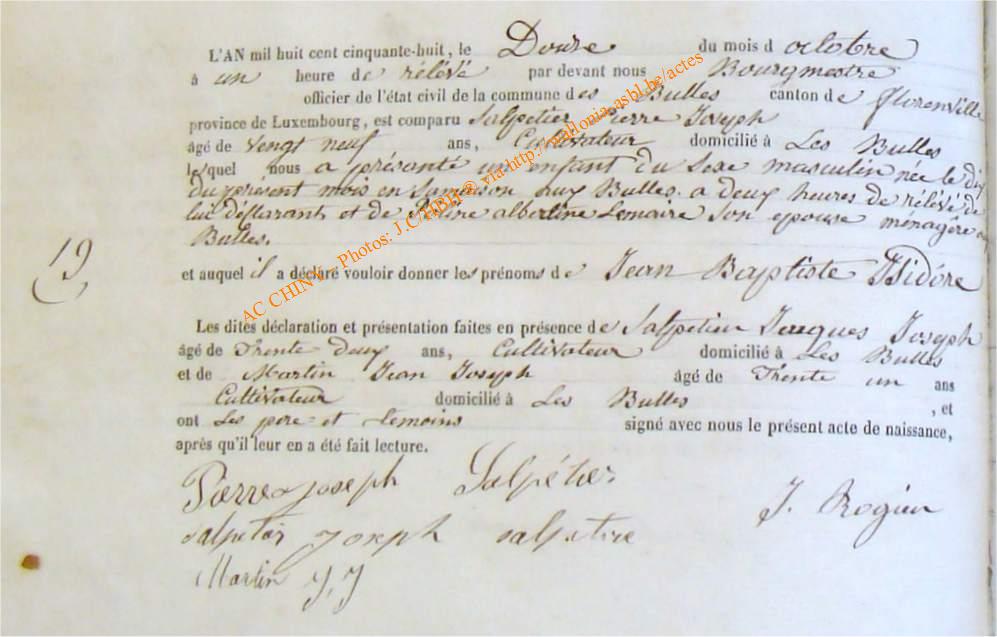 L'AN mil huit cent cinquante-huit, le Douze du mois d octobre
à un heure de rélévé par devant nous Bourgmestre
officier de l'état civil de la commune des Bulles canton de florenville
province de Luxembourg, est comparu Salpetier Pierre Joseph
âgé de vengt neuf ans, Cultivateur domicilié à Les Bulles
lequel nous a présanté un enfant du Sexe masculin née le dix
du présent mois en Sa maison aux Bulles. a deux heures de rélévé de
lui déclarant et de albertine Lemaire Son epouse ménagére
Bulles.
19
et auquel il a déclaré vouloir donner les prénoms de Jean Baptiste Isidóre
Les dites déclaration et présentation faites en présence de Salpetier Jacques Joseph
âgé de Trente Deux ans, Cultivateur domicilié à Les Bulles
et de Martin Jean Joseph âgé de Trente un ans
Cultivateur domicilié à Les Bulles , et
ont Les pere et temoins signé avec nous le présent acte de naissance,
après qu'il leur en a été fait lecture.
Pierre joseph Salpétier
J. Rogier
joseph
Martin J, J
AC CHINY - Photos: J.C. HBH® via http://wallonia-asbl.be/actes